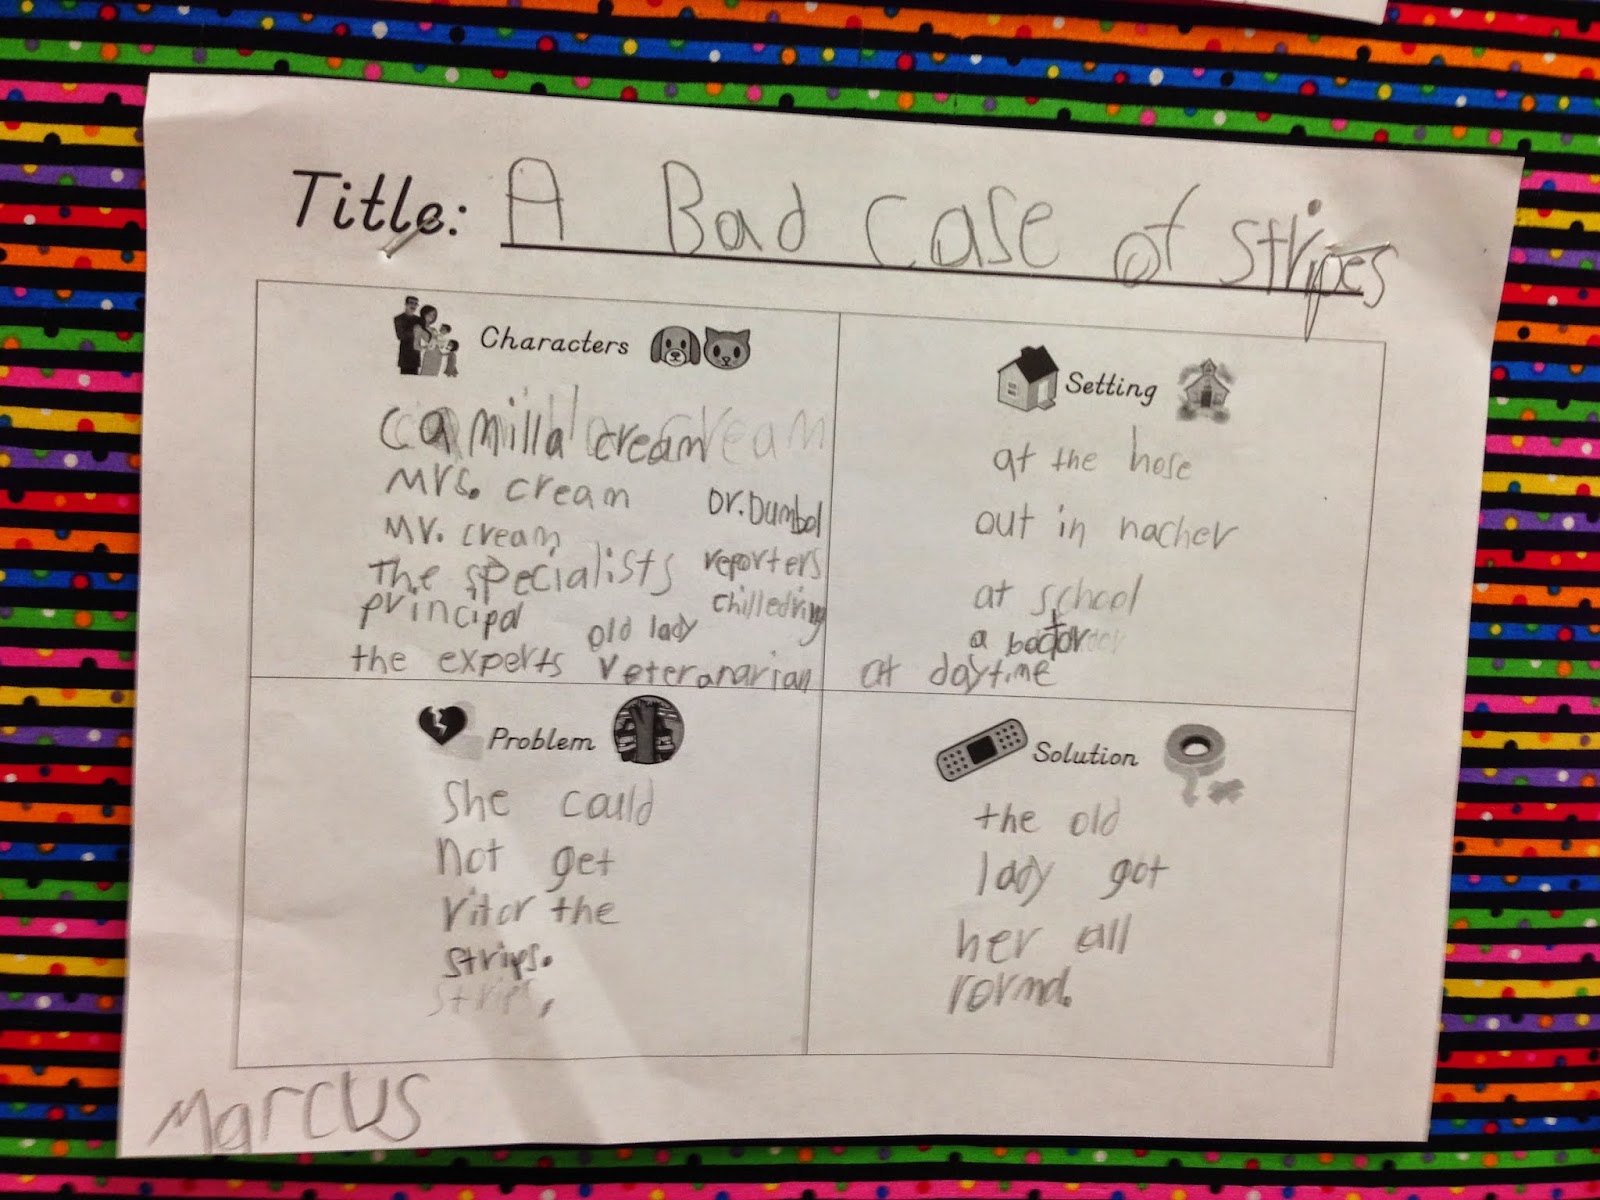 Title: A Bad case of stripes
Characters
camilla cream
Mrs. cream
Dr. Dumbol
Mr. cream
reporters
The specialists
chilledring
principal
old lady
the experts
veteranarian
Setting
at the hose
out in nacher
at school
a
at daytime
Problem
She could
not get
ritor the
strips.
strips,
Solution
the old
lady got
her all
rormd.
Marcus